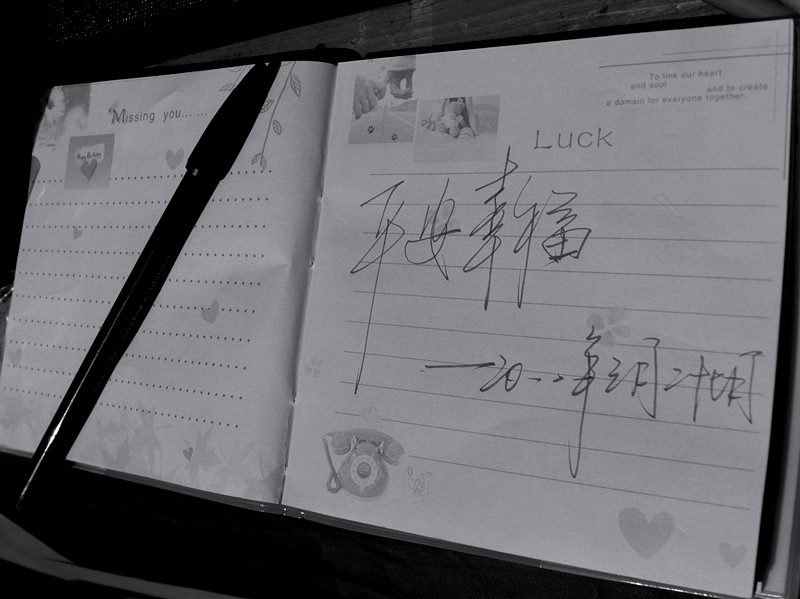 Missing you... ...
Happy Birthday
To link our heart
and soul and to create
a domain for everyone together.
Luck
平安幸福